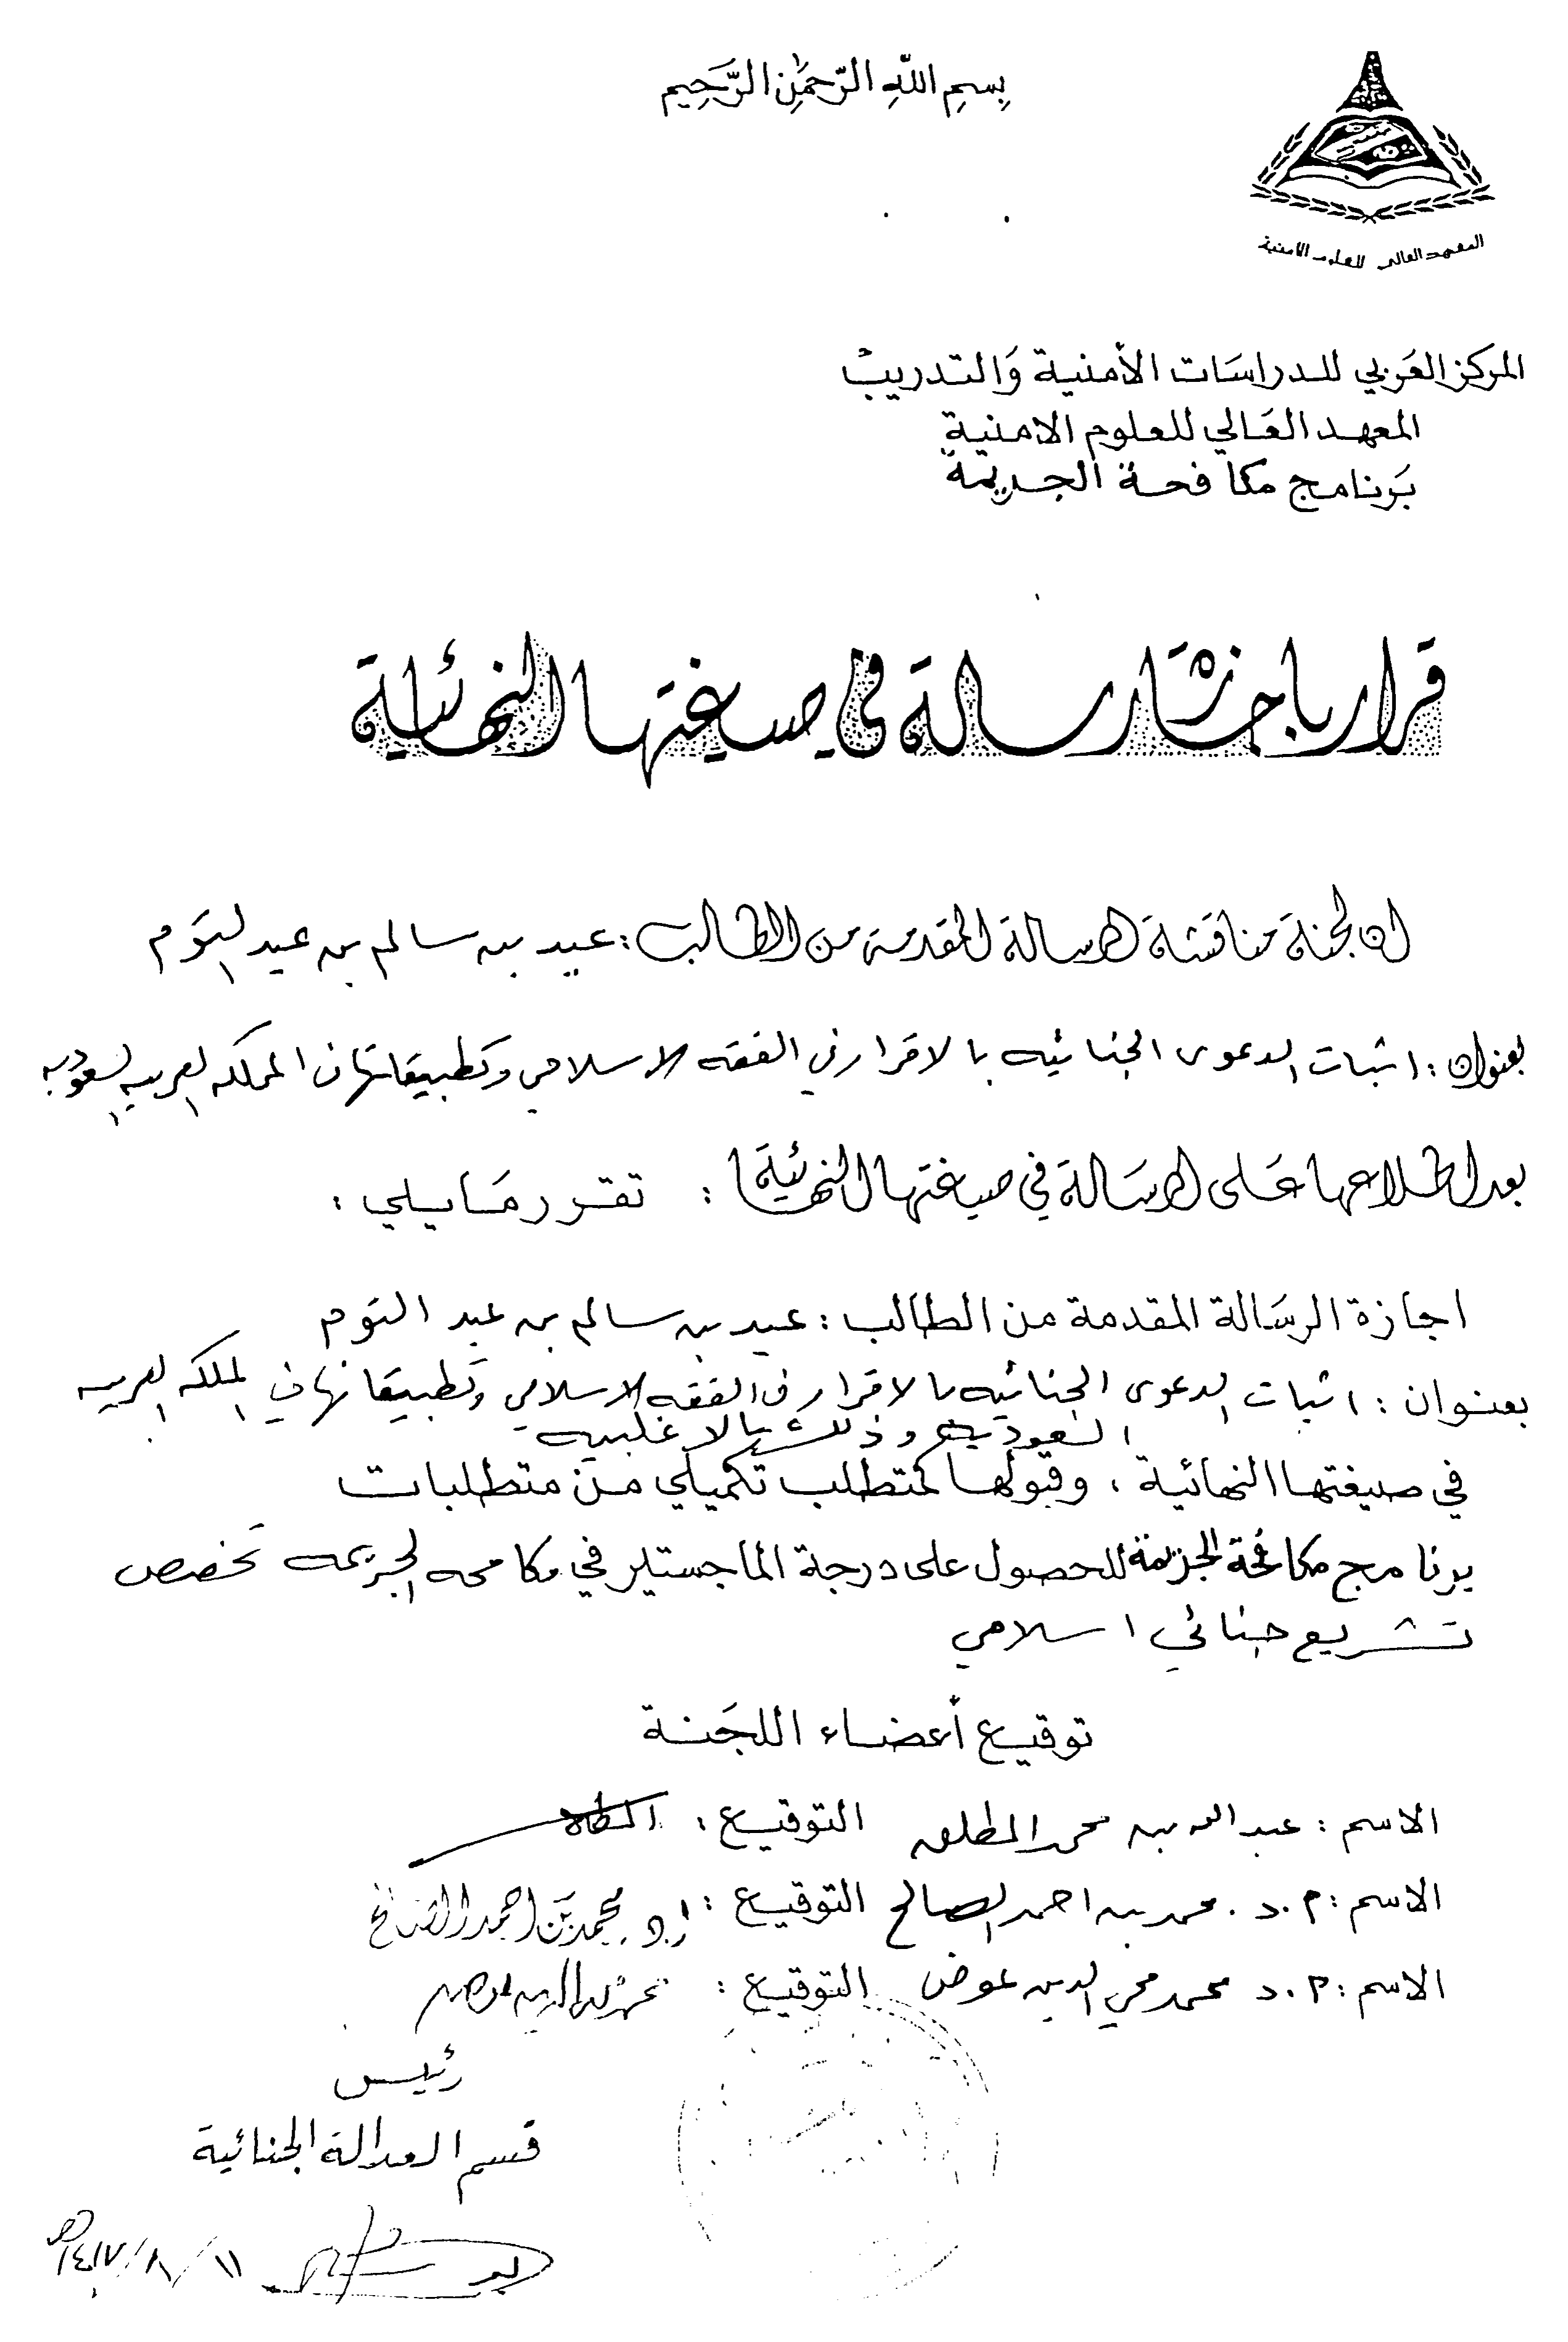 بِسمِ اللّهِ الرّحمٰنِ الرَّحِيم
المعهد العالي للعلوم الامنية
المركز العَربي للدراسَات الأمنية وَالتدريبْ
المعهد العَالي للعلوم الامنية
بَرنامج مكافحة الجريمة
قرار باجازة رسالة في صيغتها النهائية
ان لجنة مناقشة الرسالة المقدمة من الطالب : عيد بن سالم بن عيد اليوَم
بعنوان : اثبات الدعوى الجنائيه بالاقرار في الفقه الاسلامي وتطبيقاتها في المملكه العربيه السعوديه
بعد اطلاعها عَلى الرسَالة في صياغتها النهَائيَة : تقرر مَا يلي :
اجازة الرسَالة المقدمة من الطالب : عيد بن سالم بن عيد اليوَم
بعنوان : اثبات الدعوى الجنائيه بالاقرار في الفقه الاسلامي وتطبيقاتها في المملكه العربيه
السعوديه وذلك بالاغلبيه
في صيغتها النهائية ، وقبولها كمتطلب تكميلي من متطلبات
برنامج مكافحة الجريمة للحصول على درجة الماجستير في مكافحه الجريمه تخصص
تشريع جنائي اسلامي
توقيع أعضاء اللجَنة
الاسم : عبدالله بن محمد المطلق التوقيع :
الاسم : أ.د. محمد بن احمد الصالح التوقيع : أ.د. محمد بن احمد الصالح
الاسم : أ.د محمد محي الدين عوض التوقيع :
رئيس
قسم العدالة الجنائية
١١/٨/١٤١٧هـ